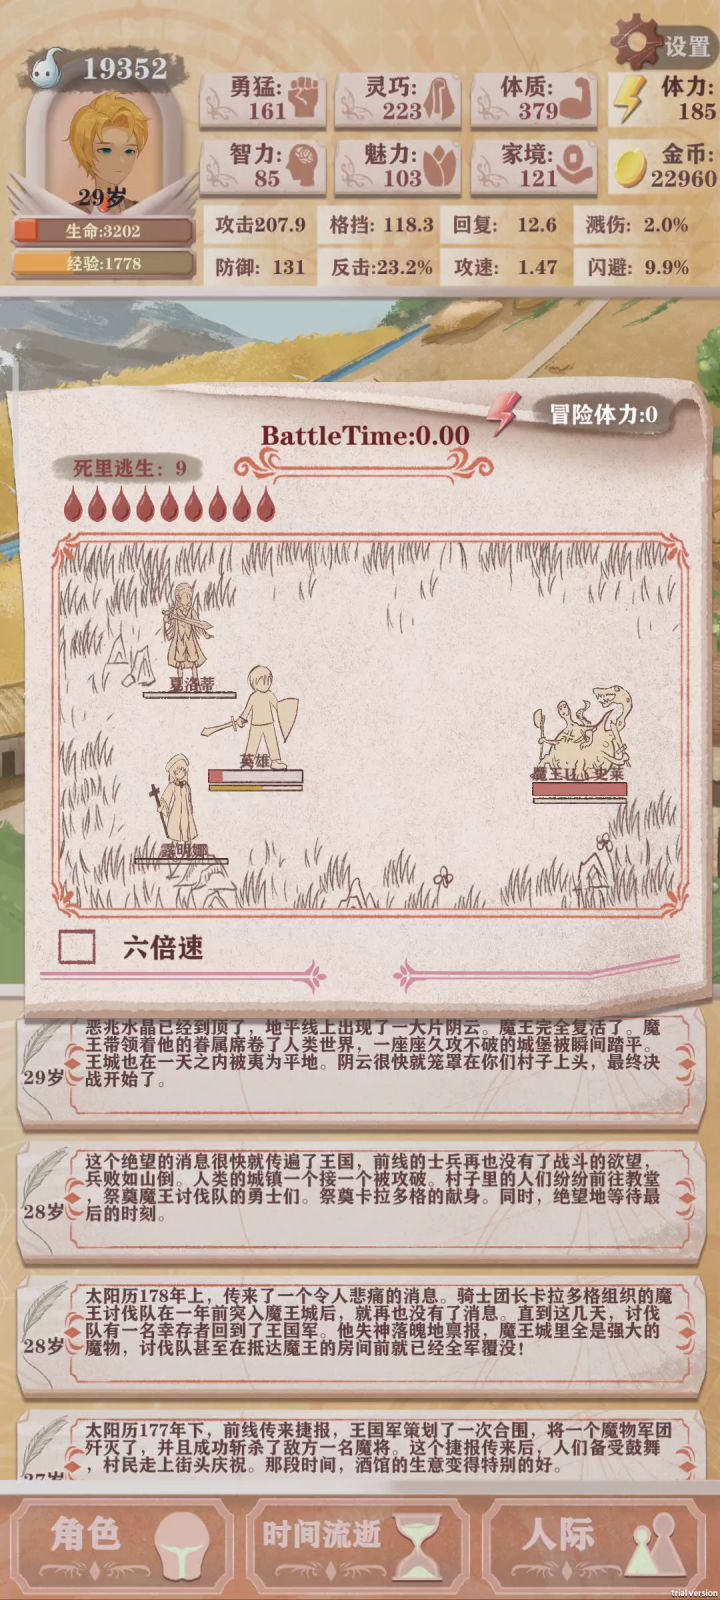 设置
19352
29岁
生命:3202
经验:1778
勇猛: 161
灵巧: 223
体质: 379
体力: 185
智力: 85
魅力: 103
家境: 121
金币: 22960
攻击207.9 格挡: 118.3 回复: 12.6 溅伤: 2.0%
防御: 131 反击:23.2% 攻速: 1.47 闪避: 9.9%
冒险体力:0
BattleTime:0.00
死里逃生: 9
夏洛蒂
英雄
魔王
史莱
露明娜
六倍速
29岁
恶兆水晶已经到顶了，地平线上出现了一大片阴云。魔王完全复活了。魔
王带领着他的眷属席卷了人类世界，一座座久攻不破的城堡被瞬间踏平。
王城也在一天之内被夷为平地。阴云很快就笼罩在你们村子上头，最终决
战开始了。
28岁
这个绝望的消息很快就传遍了王国，前线的士兵再也没有了战斗的欲望，
兵败如山倒。人类的城镇一个接一个被攻破。村子里的人们纷纷前往教堂
，祭奠魔王讨伐队的勇士们。祭奠卡拉多格的献身。同时，绝望地等待最
后的时刻。
28岁
太阳历178年上，传来了一个令人悲痛的消息。骑士团长卡拉多格组织的魔
王讨伐队在一年前突入魔王城后，就再也没有了消息。直到这几天，讨伐
队有一名幸存者回到了王国军。他失神落魄地禀报，魔王城里全是强大的
魔物，讨伐队甚至在抵达魔王的房间前就已经全军覆没！
27岁
太阳历177年下，前线传来捷报，王国军策划了一次合围，将一个魔物军团
歼灭了，并且成功斩杀了敌方一名魔将。这个捷报传来后，人们备受鼓舞
，村民走上街头庆祝。那段时间，酒馆的生意变得特别的好。
角色
时间流逝
人际
trial version